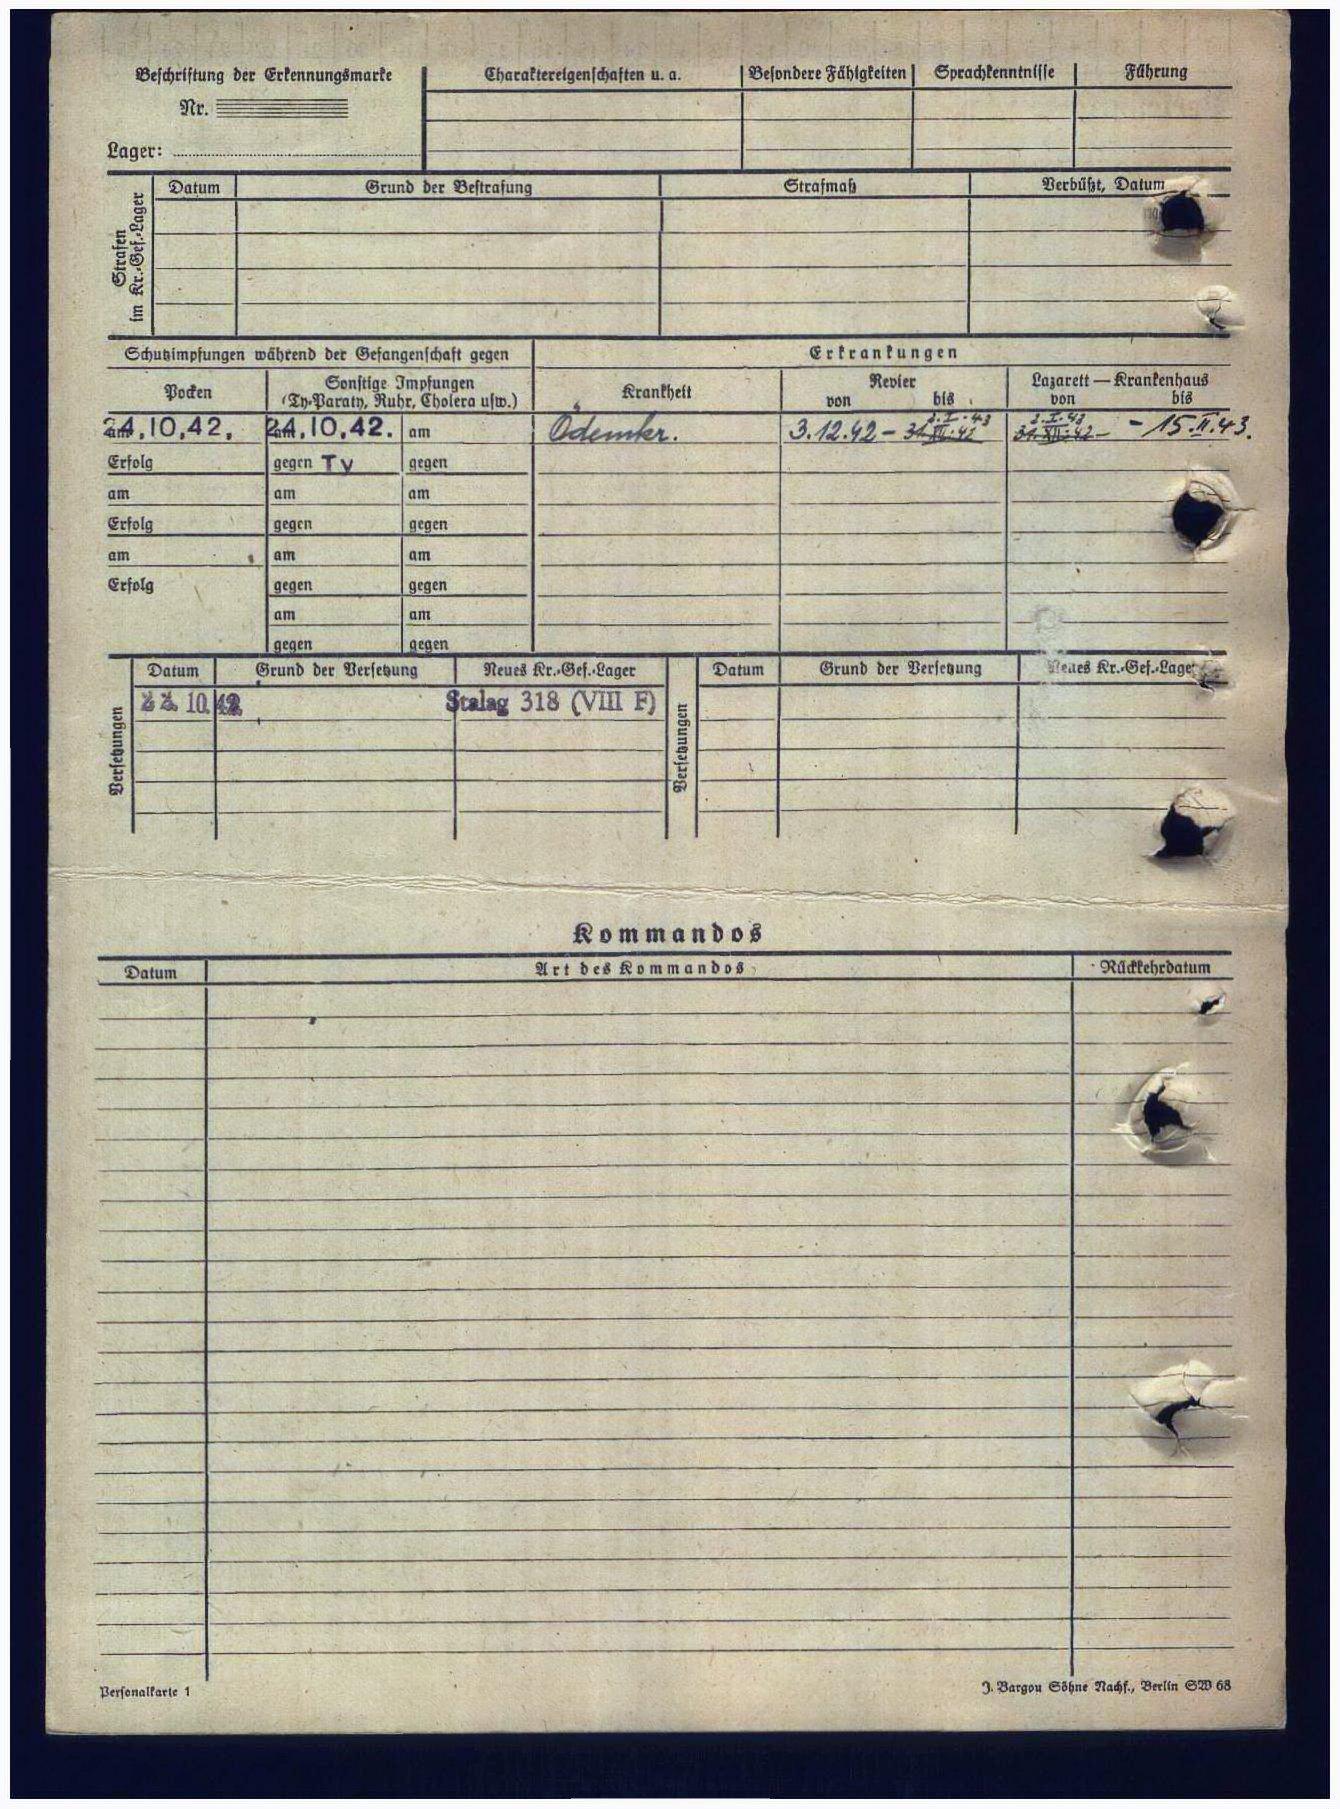 Beschriftung der Erkennungsmarke
Nr.
Lager:
Charaktereigenschaften u. a.
Besondere Fähigkeiten
Sprachkenntnisse
Führung
Strafen
im Kr.-Gef.-Lager
Datum
Grund der Bestrafung
Strafmaß
Verbüßt, Datum
Schutzimpfungen während der Gefangenschaft gegen
Erkrankungen
Pocken
Sonstige Impfungen
(Ty-Paraty, Ruhr, Cholera usw.)
Krankheit
Revier
von bis
Lazarett — Krankenhaus
von bis
am 24.10.42. am 24.10.42. am
Ödemkr.
2.I.43 2.I.43
3.12.42 – 31.XII.42 31.XII.42 – 15.II.43.
Erfolg gegen Ty gegen
am am am
Erfolg gegen gegen
am am am
Erfolg gegen gegen
am am
gegen gegen
Versetzungen
Datum Grund der Versetzung Neues Kr.-Gef.-Lager
10. 42 Stalag 318 (VIII F)
Versetzungen
Datum Grund der Versetzung Neues Kr.-Gef.-Lager
Kommandos
Datum Art des Kommandos Rückkehrdatum
Personalkarte 1
J. Bargou Söhne Nachf., Berlin SW 68